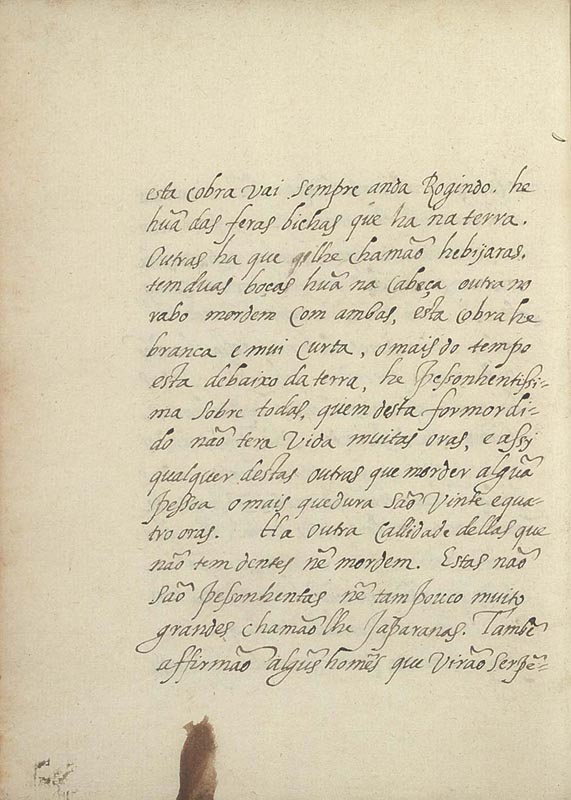 esta cobra vai sempre anda Rogindo. he
huã das feras bichas que ha na terra.
Outras ha que lhe chamão hebijaras.
tem duas bocas huã na cabeça outra no
rabo mordem com ambas, esta cobra he
branca e mui curta, o mais do tempo
esta debaixo da terra, he peſsonhentiſsi-
ma sobre todas, quem desta for mordi-
do não tera vida muitas oras, e aſsy
qualquer destas outras que morder algũa
peſsoa o mais que dura são vinte e qua-
tro oras. Ha outra callidade dellas que
não tem dentes nẽ mordem. Estas não
são peſsonhentas nẽ tam pouco muito
grandes chamão lhe Japaranas. Tambẽ
affirmão algũs homẽs que virão serpẽ-